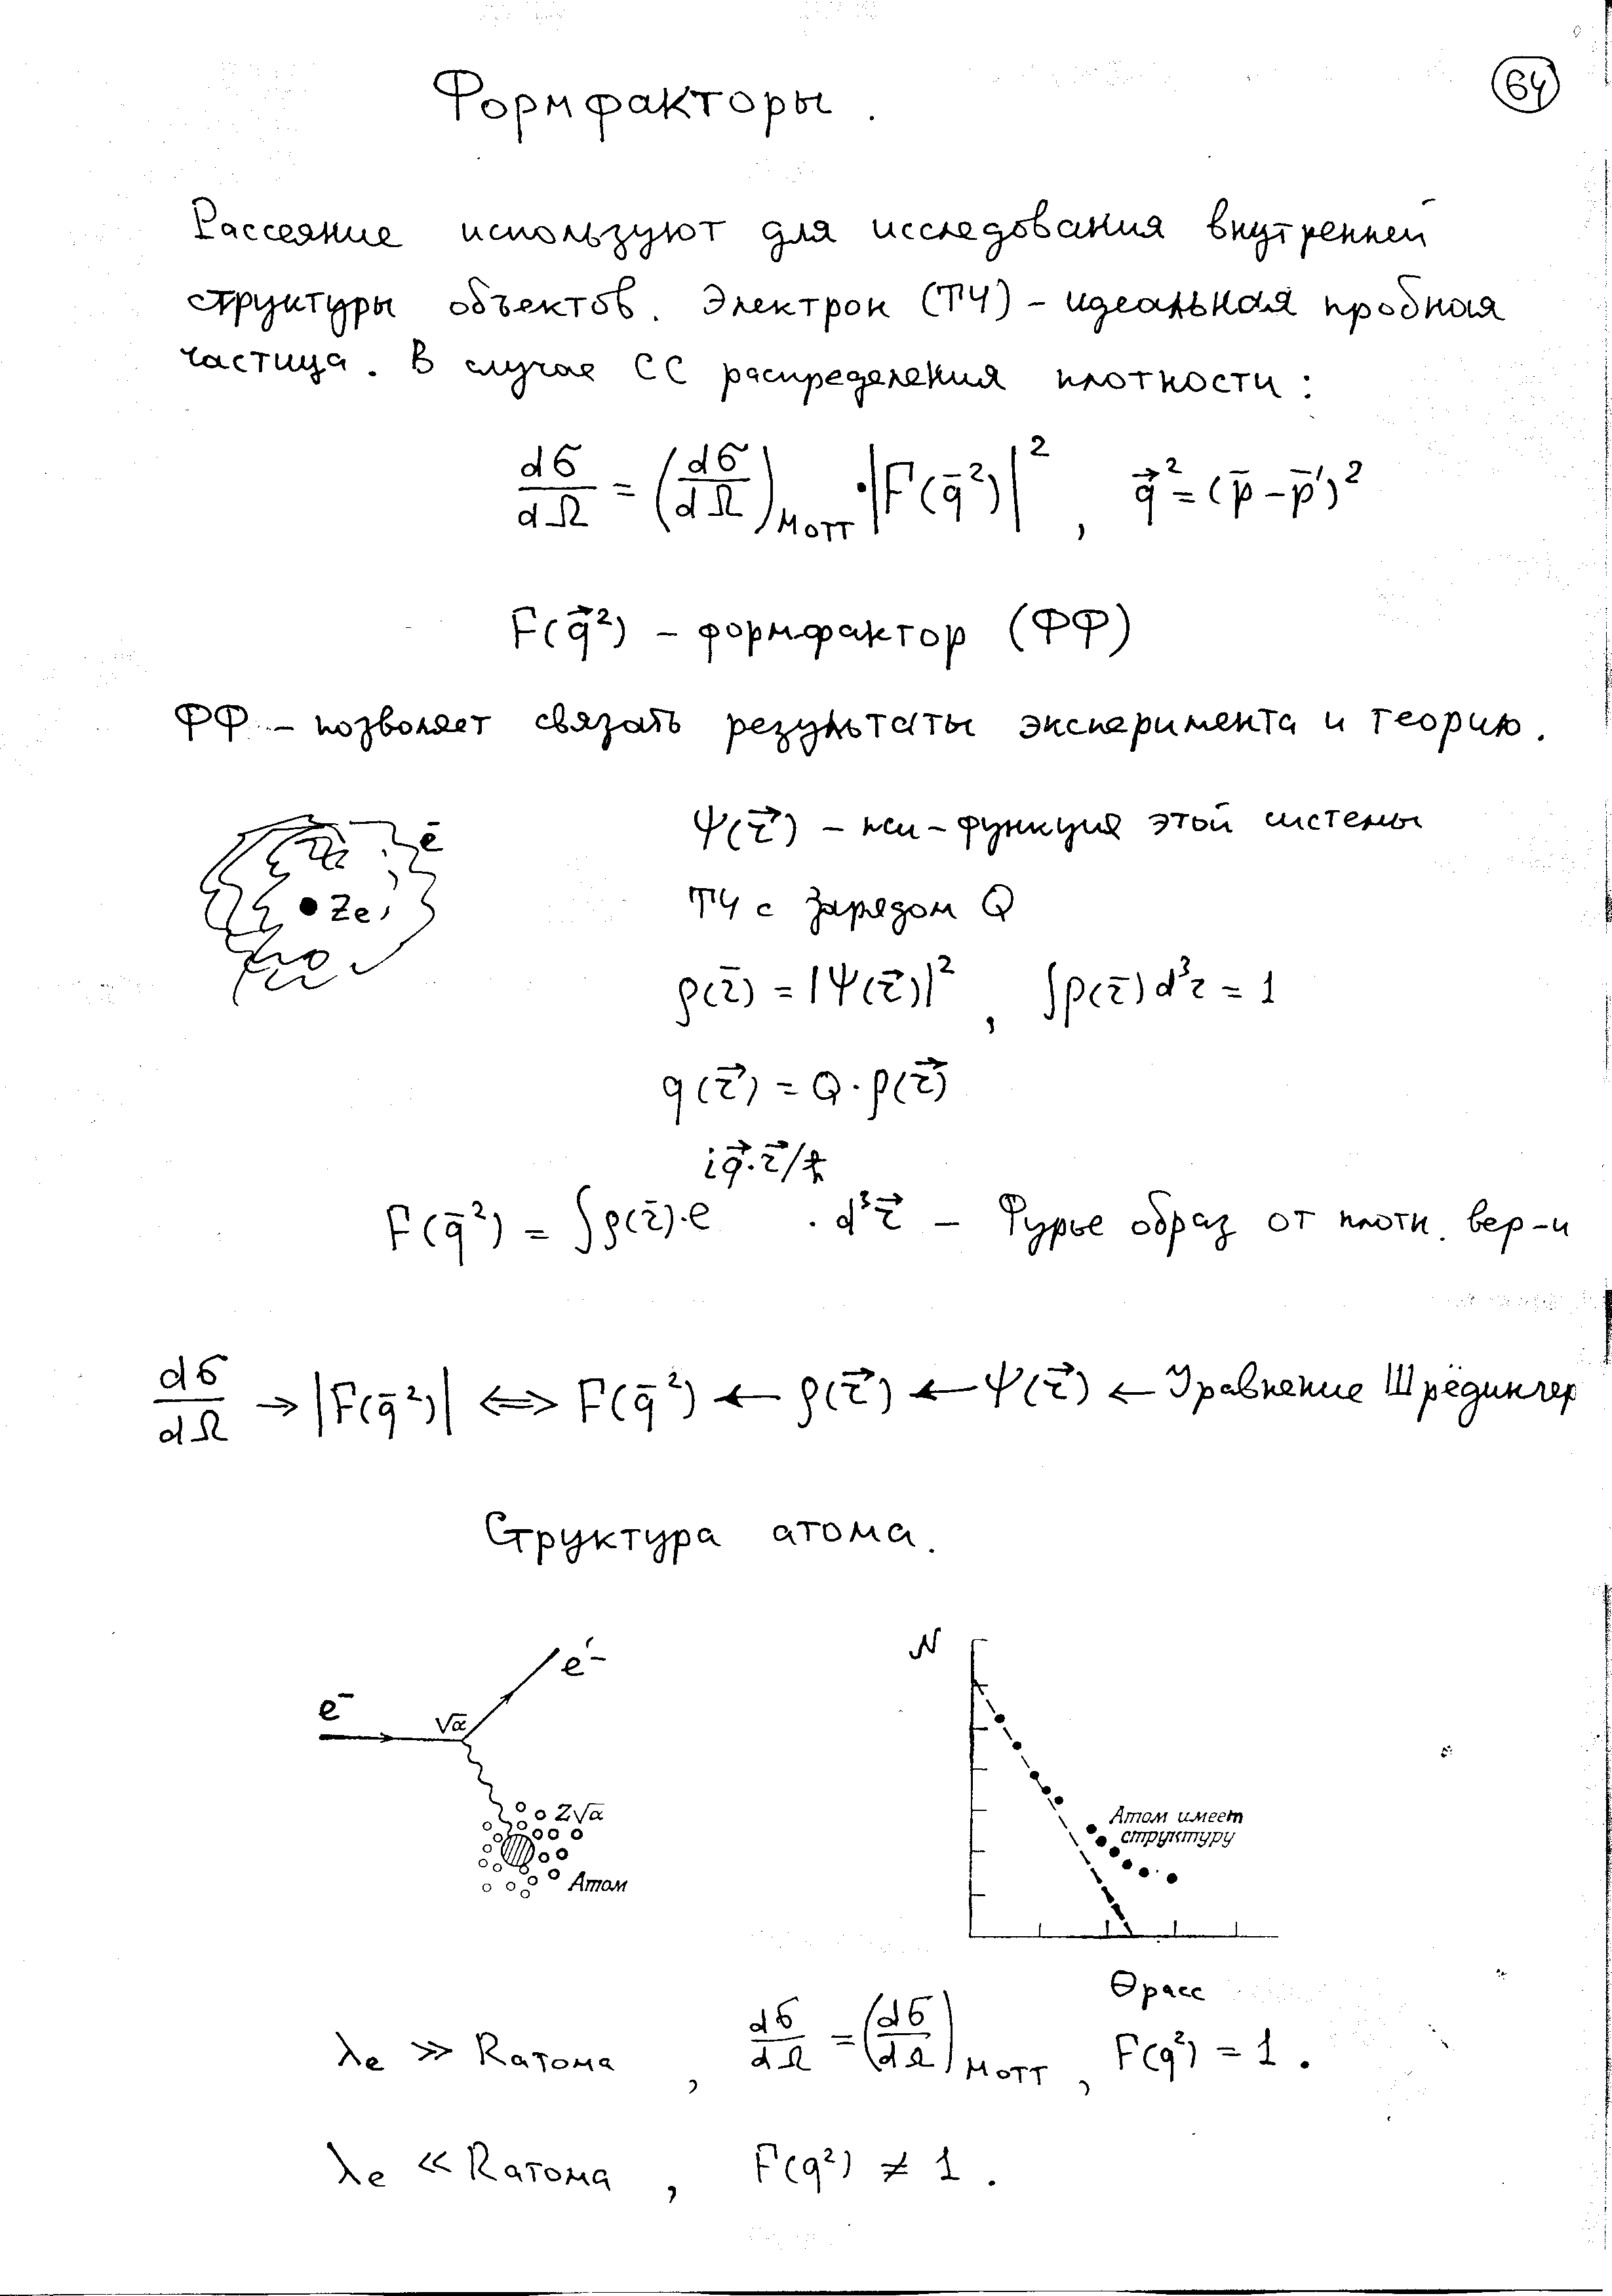 64
Формфакторы.
Рассеяние используют для исследования внутренней
структуры объектов. Электрон (ТЧ) – идеальная пробная
частица. В случае СС распределения плотности:
dσ/dΩ = (dσ/dΩ)Мотт · |F(q̄²)|², q⃗² = (p̄ – p̄')²
F(q⃗²) – формфактор (ФФ)
ФФ – позволяет связать результаты эксперимента и теорию.
ē
Ze
Ψ(r⃗) – пси-функция этой системы
ТЧ с зарядом Q
ρ(r̄) = |Ψ(r⃗)|², ∫ρ(r̄) d³r = 1
q(r⃗) = Q · ρ(r⃗)
F(q̄²) = ∫ρ(r̄) · e^(i q⃗·r⃗/ħ) · d³r⃗ – Фурье образ от плотн. вер-и
dσ/dΩ → |F(q̄²)| ⟺ F(q̄²) ← ρ(r⃗) ← Ψ(r⃗) ← Уравнение Шрёдингер
Структура атома.
e⁻
√α
e'⁻
Z√α
Атом
N
Атом имеет
структуру
Θрасс
λe ≫ Rатома, dσ/dΩ = (dσ/dΩ)Мотт, F(q²) = 1.
λe ≪ Rатома, F(q²) ≠ 1.